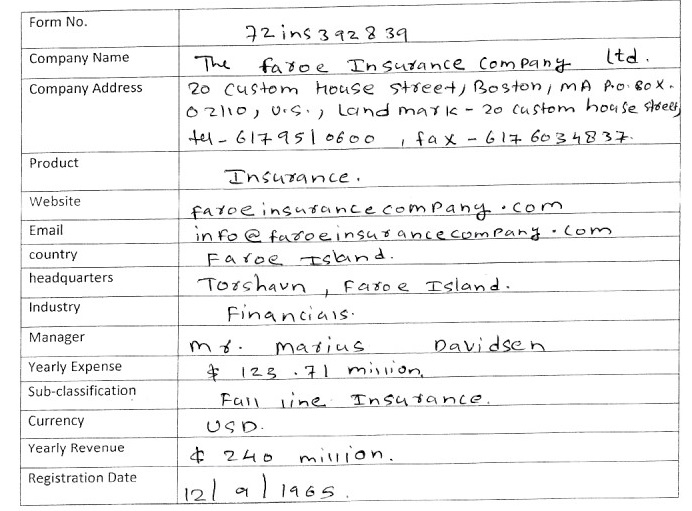 Form No. 72ins392839
Company Name The faroe Insurance Company Ltd.
Company Address 20 Custom House Street, Boston, MA P.O.BOX.
02110, U.S., Land mark - 20 custom house street,
tel - 6179510600 , fax - 6176034837.
Product Insurance.
Website faroeinsurancecompany.com
Email info@faroeinsurancecompany.com
country Faroe Island.
headquarters Torshavn , Faroe Island.
Industry Financials.
Manager Mr. Marius Davidsen
Yearly Expense $ 123.71 million.
Sub-classification Full line Insurance.
Currency USD.
Yearly Revenue $ 240 million.
Registration Date 12/9/1965.